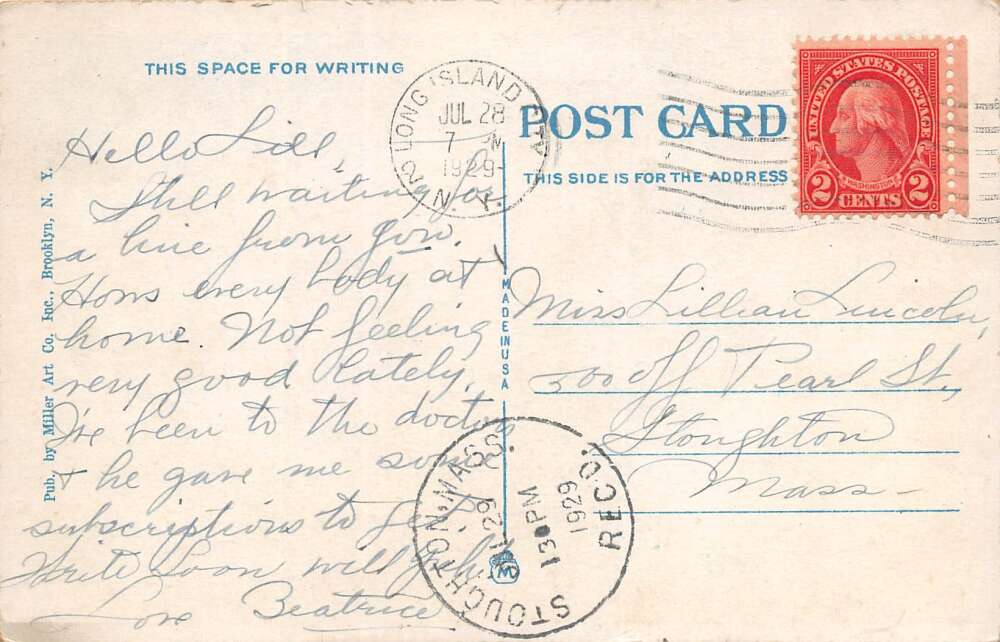 THIS SPACE FOR WRITING
Hello Lill,
Still waiting for
a line from you.
Hows every body at
home. Not feeling
very good lately.
I've been to the doctor
& he gave me some
subscriptions to get
Write Soon will
Love Beatrice
Pub. by Miller Art Co. Inc., Brooklyn, N. Y.
LONG ISLAND
JUL 28
7 M
1929
N. Y.
POST CARD
THIS SIDE IS FOR THE ADDRESS
UNITED STATES POSTAGE
WASHINGTON
2 CENTS 2
MADE IN USA
Miss Lillian Lincoln,
500 off Pearl St.
Stoughton
Mass-
STOUGHTON, MASS.
29
130PM
1929
REC'D.
M